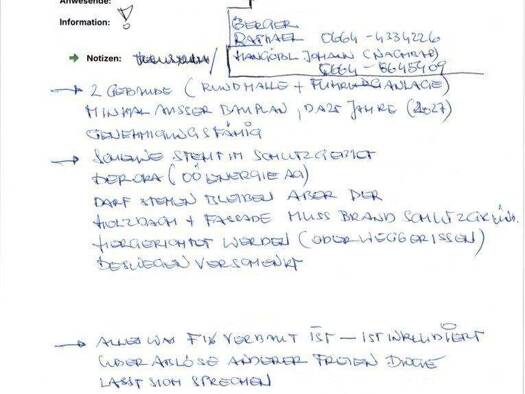 Anwesende:
Information: !
BERGER
RAPHAEL 0664-4334226
Notizen:
HANGÖBL JOHANN (NACHBAR)
0664-8645409
→ 2 GEBÄUDE (RUNDHALLE +
MINIMAL AUSSER BAUPLAN, DAZU JAHRE (2027)
GENEHMIGUNGSFÄHIG
→ SCHEUNE STEHT IM SCHUTZGEBIET
DER ORA (OÖ ENERGIE AG)
DARF STEHEN BLEIBEN ABER DER
HOLZDACH + FASSADE MUSS BRANDSCHUTZ
HERGERICHTET WERDEN (ODER WEGGERISSEN)
DESWEGEN VERSCHENKT
→ ALLES WAS FIX VERBAUT IST – IST INKLUDIERT
ÜBER ABLÖSE ANDERER FREIEN DINGE
LÄSST SICH SPRECHEN